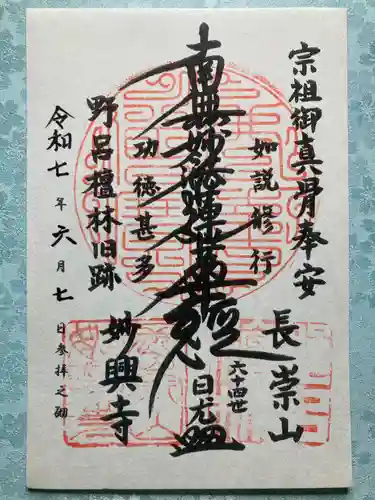 宗祖御真骨奉安
長崇山
如説修行
南無妙法蓮華経
六十四世
日元
功徳甚多
野呂檀林旧跡
妙興寺
令和七年六月七日参拝之砌